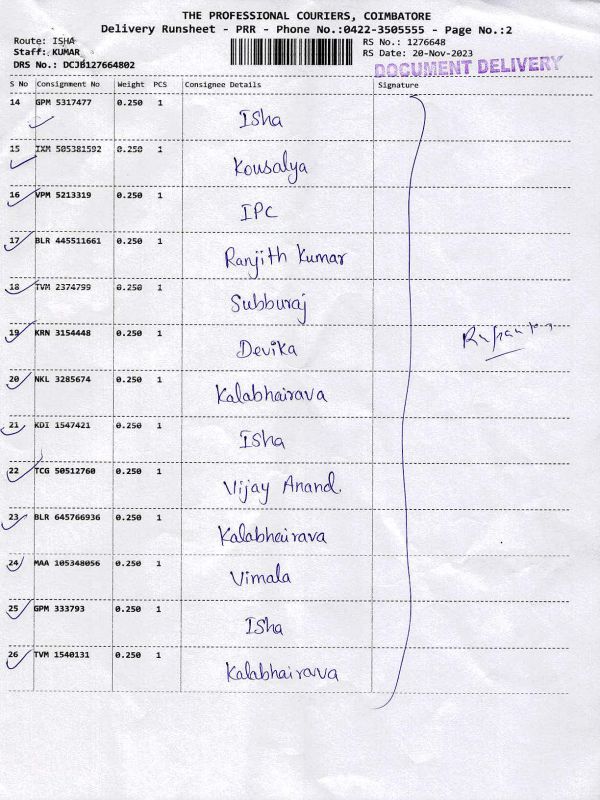 THE PROFESSIONAL COURIERS, COIMBATORE
Delivery Runsheet - PRR - Phone No.:0422-3505555 - Page No.:2
Route: ISHA RS No.: 1276648
Staff: KUMAR RS Date: 20-Nov-2023
DRS No.: DCJB127664802 DOCUMENT DELIVERY
S No Consignment No Weight PCS Consignee Details Signature
14 GPM 5317477 0.250 1
Isha
15 IXM 505381592 0.250 1
Kousalya
16 VPM 5213319 0.250 1
IPC
17 BLR 445511661 0.250 1
Ranjith Kumar
18 TVM 2374799 0.250 1
Subburaj
19 KRN 3154448 0.250 1
Devika
20 NKL 3285674 0.250 1
Kalabhairava
21 KDI 1547421 0.250 1
Isha
22 TCG 50512760 0.250 1
Vijay Anand.
23 BLR 645766936 0.250 1
Kalabhairava
24 MAA 105348056 0.250 1
Vimala
25 GPM 333793 0.250 1
Isha
26 TVM 1540131 0.250 1
Kalabhairava